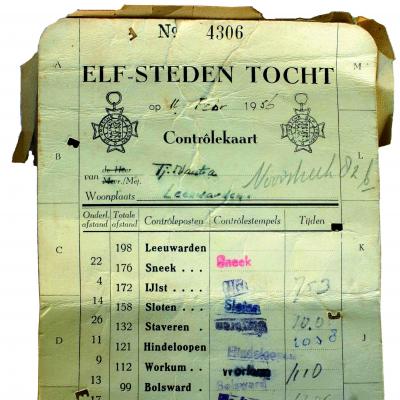 No 4306
A M
ELF-STEDEN TOCHT
op 11 Febr 1956
Contrôlekaart
B L
de Heer
van Tj.
Mevr./Mej.
Woonplaats Leeuwarden
Onderl. afstand Totale afstand Contrôleposten Contrôlestempels Tijden
C K
198 Leeuwarden
22
176 Sneek . . . Sneek
4
172 IJlst . . . 753
14
158 Sloten . . . Sloten
26
132 Staveren . 10.0
11
D J
121 Hindeloopen Hindeloopen
9
112 Workum . . Workum 110
13
99 Bolsward . Bolsward
17